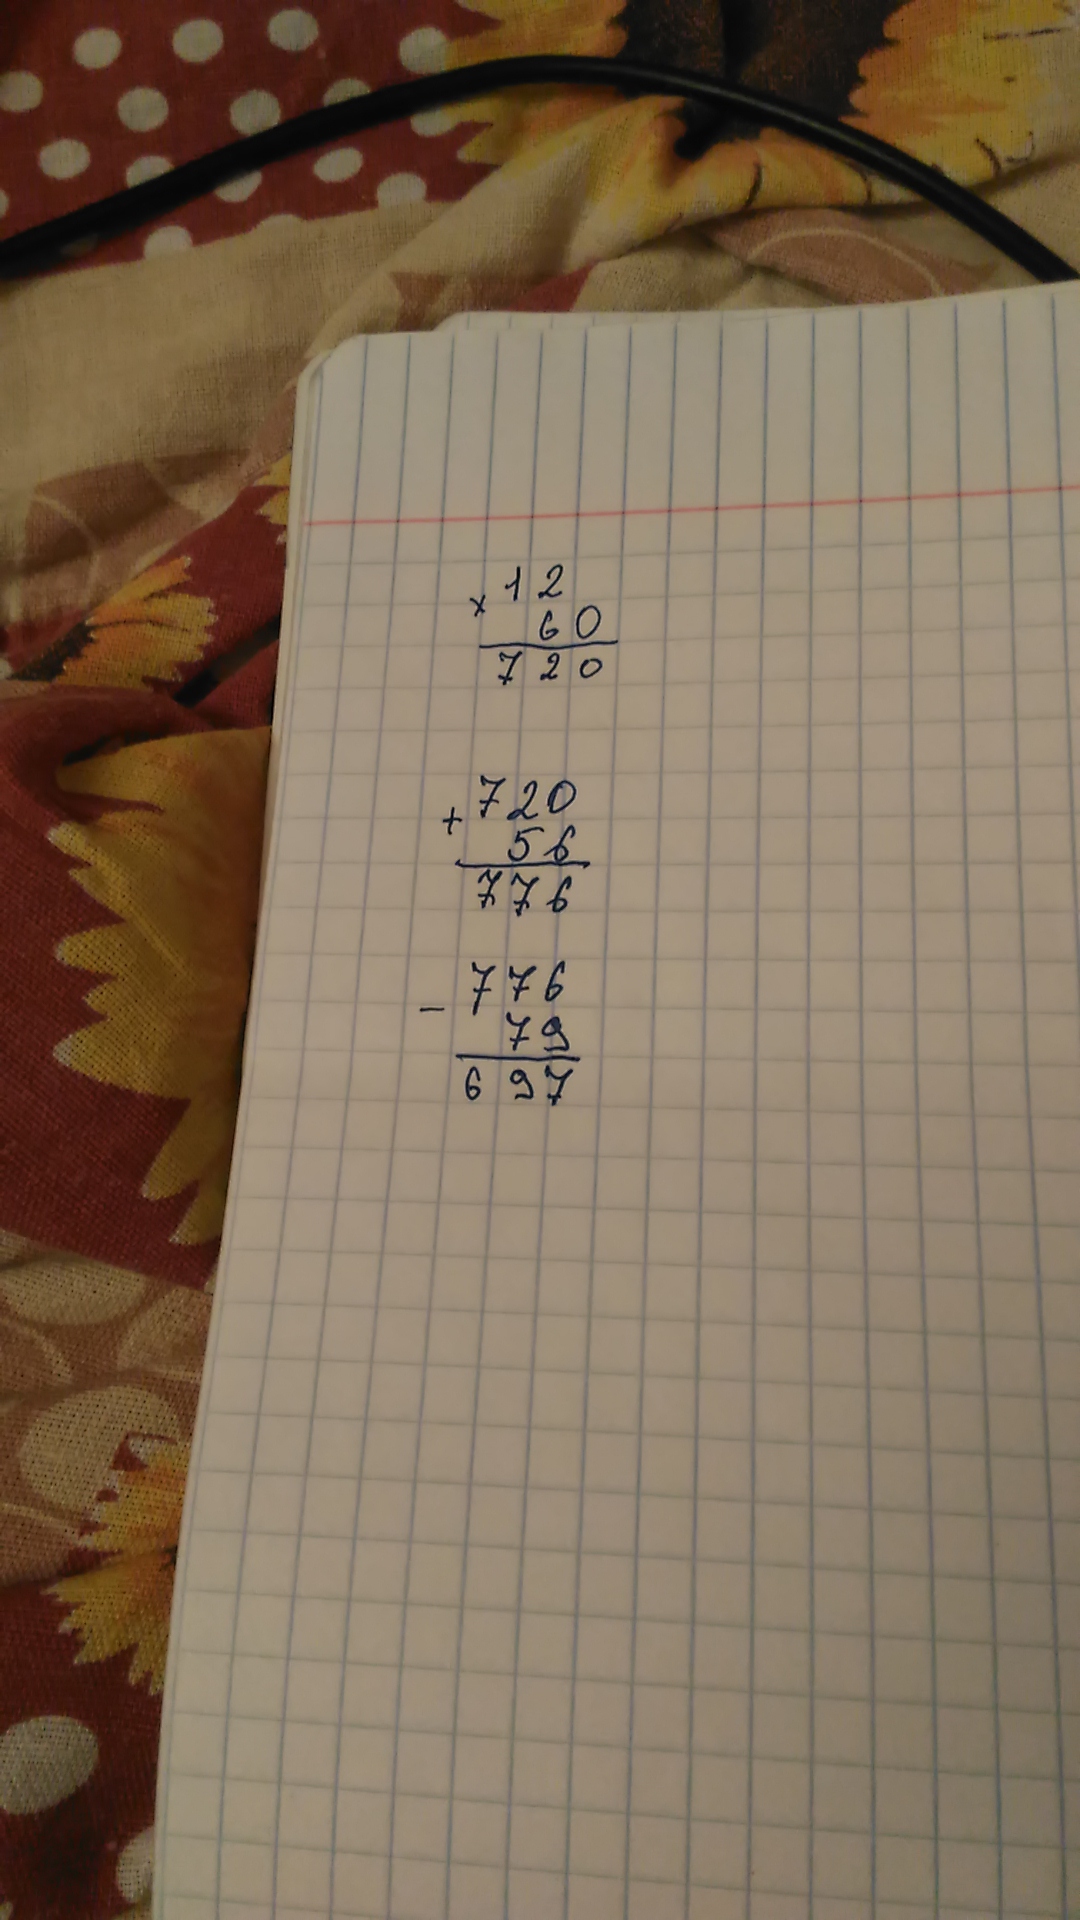 × 12
60
720
+ 720
56
776
- 776
79
697